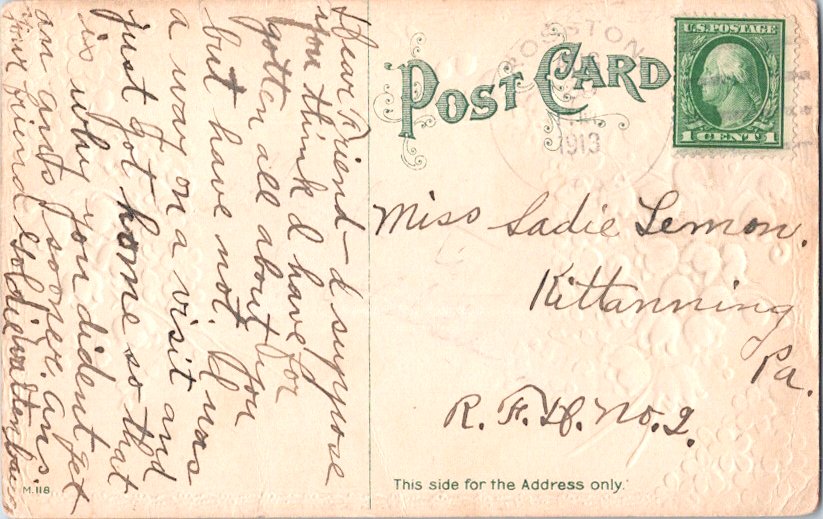 Dear Friend - I suppose
you think I have for
gotten all about you
but have not. I was
a way on a visit and
just got home so that
is why you dident get
an ants sooner. Ans
your friend Goldie
POST CARD
ROSSTON
1913
U.S. POSTAGE
1 CENT 1
Miss Sadie Lemon.
Kittanning
Pa.
R. F. D. No. 2.
This side for the Address only.
M.118